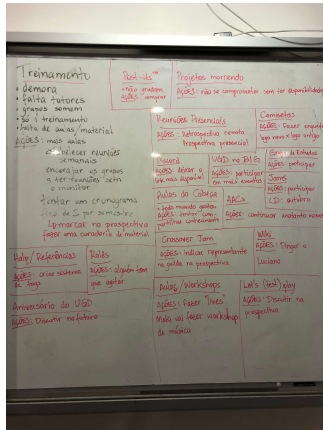 Treinamento
• demora
• falta tutores
• grupos somem
• só é treinamento
• falta de aulas/material
AÇÕES: mais aulas
estabelecer reuniões
semanais
encorajar os grupos
a ter reuniões sem
o monitor
tentar um cronograma
Lo marcar na prospectiva
fazer uma curadoria de material
Post-its™
• não grudam
AÇÕES: comprar
Projetos morrendo
AÇÕES: não se comprometer sem ter disponibilidade
Reuniões Presenciais
AÇÕES: Retrospectiva remota
prospectiva presencial
Camisetas
AÇÕES: Fazer enquete
logo novo e logo antigo
Discord
AÇÕES: deixar o
link mais disponível
UGD no BIG
AÇÕES: participar
em mais eventos
Grupo de Estudos
AÇÕES: participar
Jams
AÇÕES: participar
LD: outubro
Aulas da Cabeça
• todo mundo gostou
AÇÕES: tentar com-
partilhar conhecimento
AACs
AÇÕES: continuar anotando nomes
Crossover Jam
AÇÕES: Indicar representante
na prospectiva
Wiki
AÇÕES: Pingar o
Luciano
Help/Referências
AÇÕES: criar sistema
de tags
Rolês
AÇÕES: alguém tem
que agitar
Aniversário da UGD
AÇÕES: Discutir no futuro
Aulas/Workshops
AÇÕES: Fazer
vai fazer workshop
de música
Let's (test) play
AÇÕES: Discutir na
prospectiva